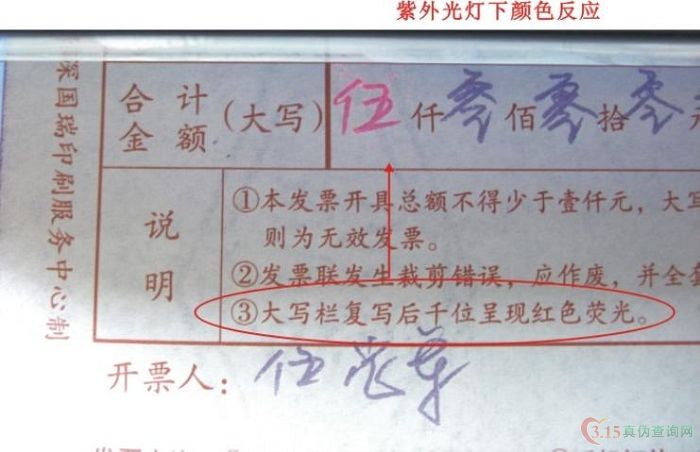 紫外光灯下颜色反应
深国瑞印刷服务中心制
合计
金额
(大写)
伍仟零佰零拾零元
说明
①本发票开具总额不得少于壹仟元，大写
则为无效发票。
②发票联发生裁剪错误，应作废，并全套
③大写栏复写后千位呈现红色荧光。
开票人：伍
3.15真伪查询网